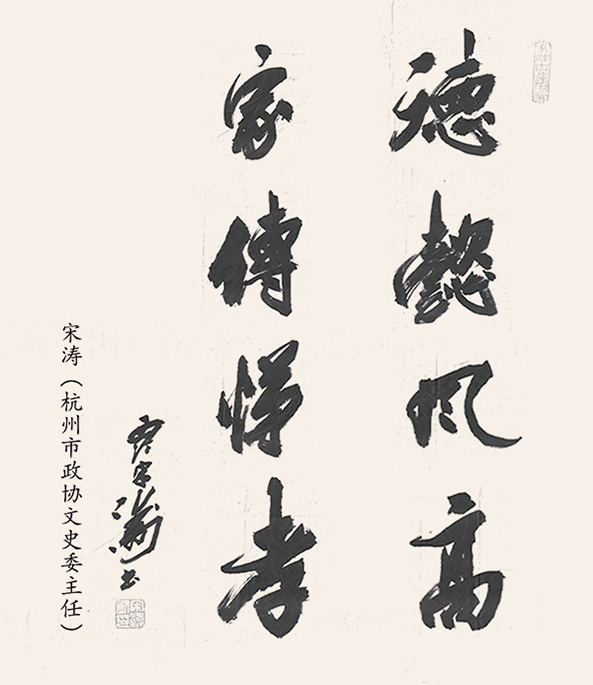 德懿风高
家傳悌孝
宋濤书
宋涛（杭州市政协文史委主任）